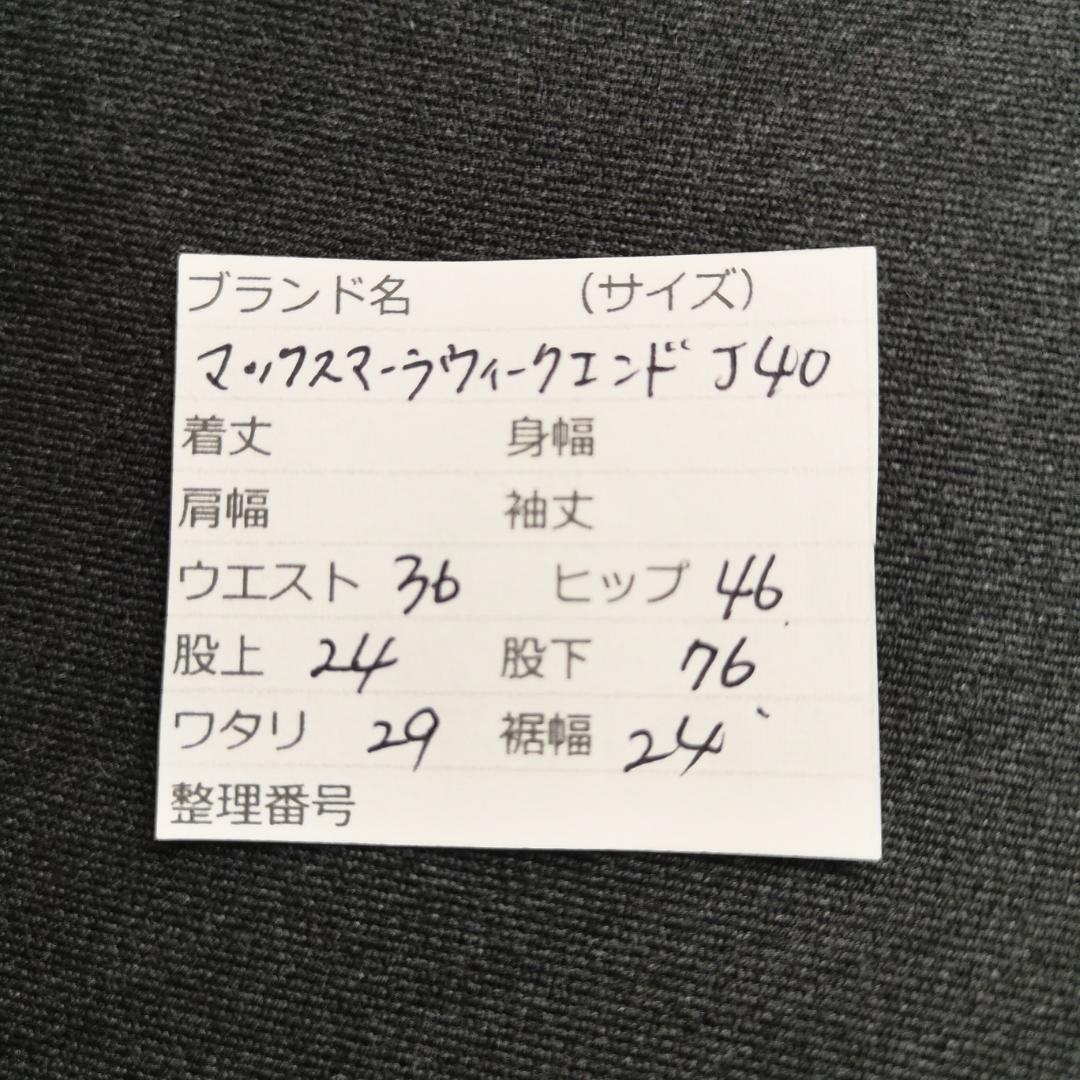 ブランド名 (サイズ)
マックスマーラウィークエンド J40
着丈 身幅
肩幅 袖丈
ウエスト 36 ヒップ 46
股上 24 股下 76
ワタリ 29 裾幅 24
整理番号